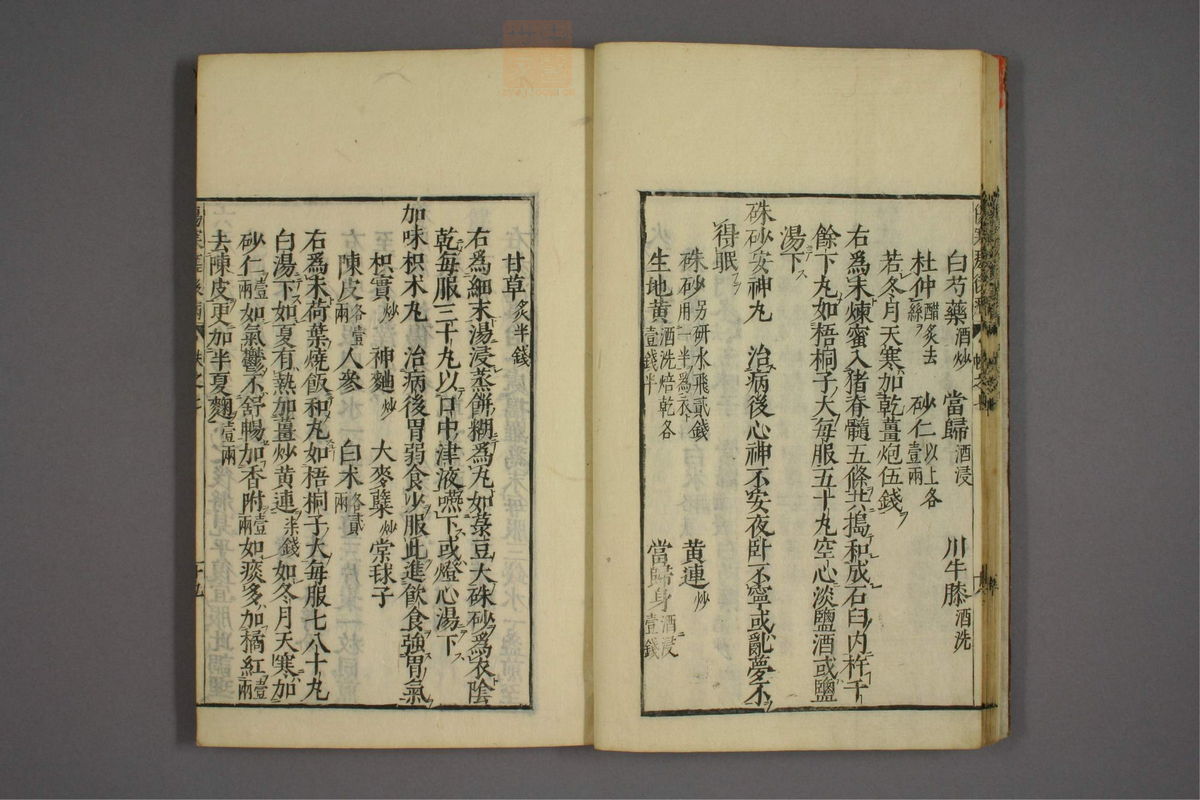 白芍藥酒炒 當歸酒浸 川牛膝酒洗
杜仲醋炙去絲 砂仁以上各壹兩
若冬月天寒加乾薑炮伍錢
右爲末煉蜜入猪脊髓五條共搗和成石臼内杵千
餘下丸如梧桐子大每服五十丸空心淡鹽酒或鹽
湯下
硃砂安神丸 治病後心神不安夜卧不寧或亂夢不
得眠
硃砂另研水飛貳錢用一半爲衣 黄連炒
生地黄酒洗焙乾各壹錢半 當歸身酒浸壹錢
甘草炙半錢
右爲細末湯浸蒸餅糊爲丸如菉豆大硃砂爲衣陰
乾每服三十丸以口中津液嚥下或燈心湯下
加味枳术丸 治病後胃弱食少服此進飲食強胃氣
枳實炒 神麯炒 大麥蘖炒 棠毬子
陳皮各壹兩 人參 白术各貳兩
右爲末荷葉燒飯和丸如梧桐子大每服七八十丸
白湯下如夏有熱加薑炒黄連柒錢如冬月天寒加
砂仁壹兩如氣鬱不舒暢加香附壹兩如痰多加橘紅壹兩
去陳皮更加半夏麯壹兩